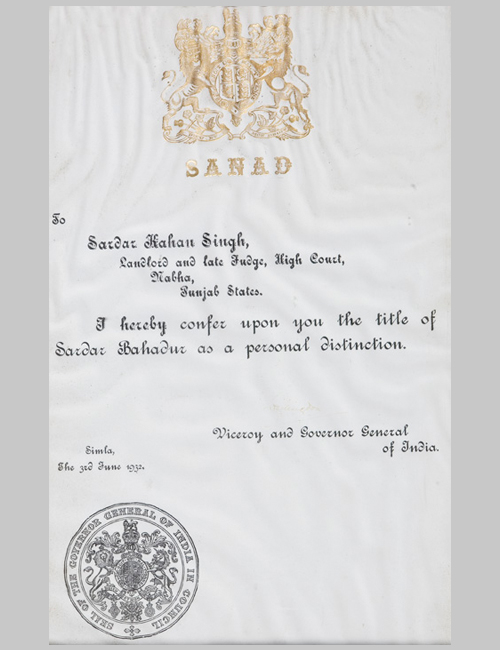 SANAD
To
Sardar Kahan Singh,
Landlord and late Judge, High Court,
Nabha,
Punjab States.
I hereby confer upon you the title of
Sardar Bahadur as a personal distinction.
Viceroy and Governor General
of India.
Simla,
The 3rd June 1932.
SEAL OF THE GOVERNOR GENERAL OF INDIA IN COUNCIL